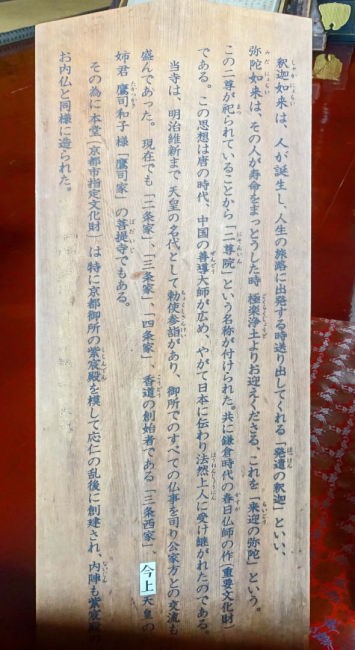 釈迦如来は、人が誕生し、人生の旅路に出発する時送り出してくれる「発遣の釈迦」といい、
弥陀如来は、その人が寿命をまっとうした時 極楽浄土よりお迎えくださる、これを「来迎の弥陀」という。
この二尊が祀られていることから「二尊院」という名称が付けられた。共に鎌倉時代の春日仏師の作(重要文化財)
である。この思想は唐の時代、中国の善導大師が広め、やがて日本に伝わり法然上人に受け継がれたのである。
当寺は、明治維新まで天皇の名代として勅使参詣があり、御所でのすべての仏事を司り公家方との交流も
盛んであった。現在でも「二条家」、「三条家」、「四条家」、香道の創始者である「三条西家」、今上天皇の
姉君 鷹司和子様「鷹司家」の菩提寺でもある。
その為に本堂(京都市指定文化財)は特に京都御所の紫宸殿を模して応仁の乱後に創建され、内陣も紫宸殿の
お内仏と同様に造られた。